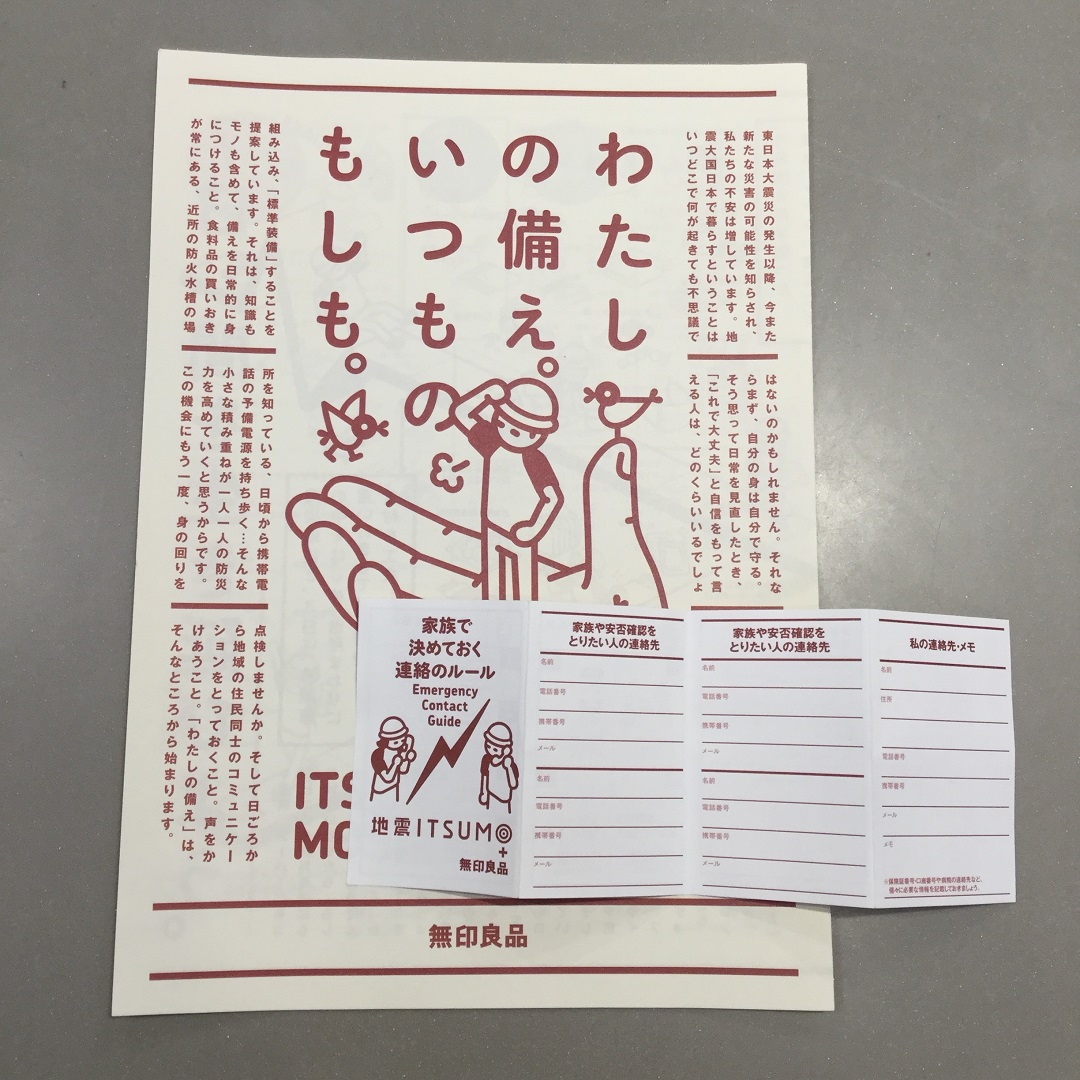 わたし
の備え。
いつもの
もしも。
東日本大震災の発生以降、今また
新たな災害の可能性を知らされ、
私たちの不安は増しています。地
震大国日本で暮らすということは
いつどこで何が起きても不思議で
はないのかもしれません。それな
らまず、自分の身は自分で守る。
そう思って日常を見直したとき、
「これで大丈夫」と自信をもって言
える人は、どのくらいいるでしょ
組み込み、「標準装備」することを
提案しています。それは、知識も
モノも含めて、備えを日常的に身
につけること。食料品の買いおき
が常にある、近所の防火水槽の場
所を知っている、日頃から携帯電
話の予備電源を持ち歩く…そんな
小さな積み重ねが一人一人の防災
力を高めていくと思うからです。
この機会にもう一度、身の回りを
点検しませんか。そして日ごろか
ら地域の住民同士のコミュニケー
ションをとっておくこと。声をか
けあうこと。「わたしの備え」は、
そんなところから始まります。
ITS
MO
無印良品
家族で
決めておく
連絡のルール
Emergency
Contact
Guide
地震ITSUMO
+
無印良品
家族や安否確認を
とりたい人の連絡先
名前
電話番号
携帯番号
メール
名前
電話番号
携帯番号
メール
家族や安否確認を
とりたい人の連絡先
名前
電話番号
携帯番号
メール
名前
電話番号
携帯番号
メール
私の連絡先・メモ
名前
住所
電話番号
携帯番号
メール
メモ
※保険証番号・口座番号や病院の連絡先など、
個々に必要な情報を記載しておきましょう。